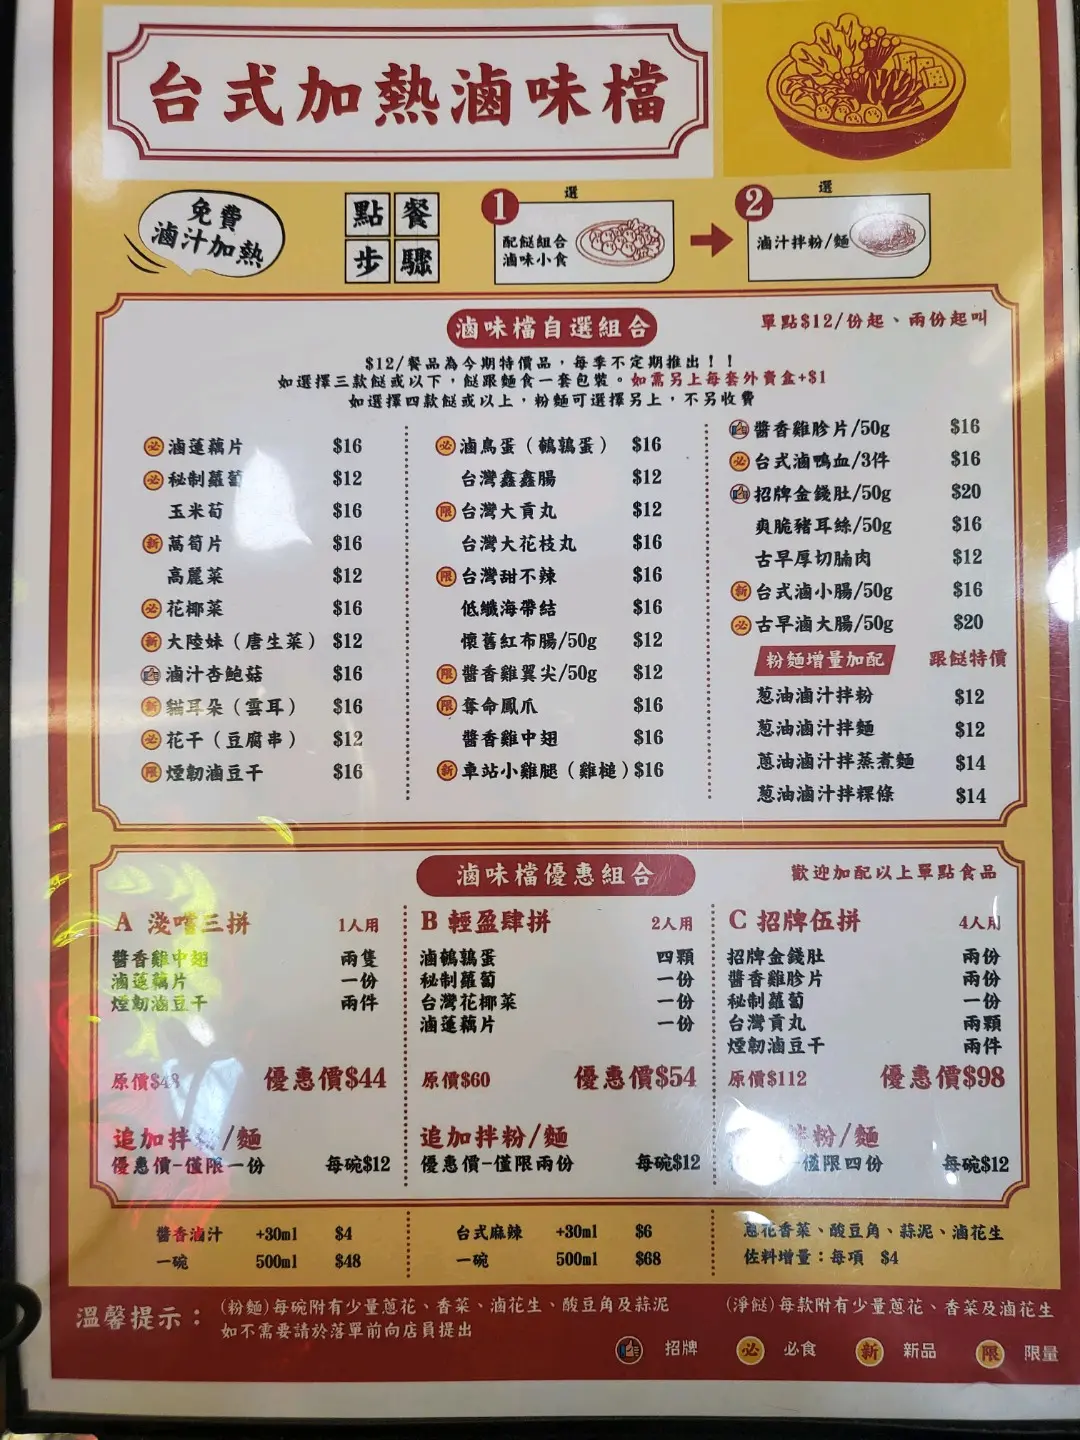 台式加熱滷味檔
免費
滷汁加熱
點餐
步驟
1 選
配餸組合
滷味小食
2 選
滷汁拌粉/麵
滷味檔自選組合
單點$12/份起、兩份起叫
$12/餐品為今期特價品，每季不定期推出！！
如選擇三款餸或以下，餸跟麵食一套包裝。如需另上每套外賣盒+$1
如選擇四款餸或以上，粉麵可選擇另上，不另收費
必 滷蓮藕片 $16
必 秘制蘿蔔 $12
玉米荀 $16
新 萵筍片 $16
高麗菜 $12
必 花椰菜 $16
新 大陸妹（唐生菜） $12
滷汁杏鮑菇 $16
新 貓耳朵（雲耳） $16
必 花干（豆腐串） $12
限 煙韌滷豆干 $16
必 滷鳥蛋（鵪鶉蛋） $16
台灣鑫鑫腸 $12
限 台灣大貢丸 $12
台灣大花枝丸 $16
限 台灣甜不辣 $16
低纖海帶結 $16
懷舊紅布腸/50g $12
限 醬香雞翼尖/50g $12
限 奪命鳳爪 $16
醬香雞中翅 $16
新 車站小雞腿（雞槌） $16
醬香雞胗片/50g $16
必 台式滷鴨血/3件 $16
招牌金錢肚/50g $20
爽脆豬耳絲/50g $16
古早厚切腩肉 $12
新 台式滷小腸/50g $16
必 古早滷大腸/50g $20
粉麵增量加配 跟餸特價
蔥油滷汁拌粉 $12
蔥油滷汁拌麵 $12
蔥油滷汁拌蒸煮麵 $14
蔥油滷汁拌粿條 $14
滷味檔優惠組合
歡迎加配以上單點食品
A 淺嚐三拼 1人用
醬香雞中翅 兩隻
滷蓮藕片 一份
煙韌滷豆干 兩件
原價$48 優惠價$44
追加拌粉/麵
優惠價-僅限一份 每碗$12
B 輕盈肆拼 2人用
滷鵪鶉蛋 四顆
秘制蘿蔔 一份
台灣花椰菜 一份
滷蓮藕片 一份
原價$60 優惠價$54
追加拌粉/麵
優惠價-僅限兩份 每碗$12
C 招牌伍拼 4人用
招牌金錢肚 兩份
醬香雞胗片 兩份
秘制蘿蔔 一份
台灣貢丸 兩顆
煙韌滷豆干 兩件
原價$112 優惠價$98
拌粉/麵
僅限四份 每碗$12
醬香滷汁 +30ml $4
一碗 500ml $48
台式麻辣 +30ml $6
一碗 500ml $68
蔥花香菜、酸豆角、蒜泥、滷花生
佐料增量：每項 $4
溫馨提示：
(粉麵)每碗附有少量蔥花、香菜、滷花生、酸豆角及蒜泥
如不需要請於落單前向店員提出
(淨餸)每款附有少量蔥花、香菜及滷花生
招牌 必 必食 新 新品 限 限量